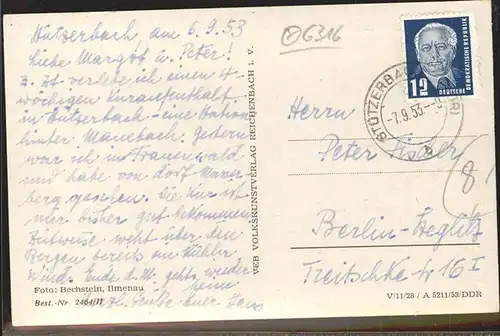 Stützerbach, am 6.9.53
Liebe Margot u. Peter!
z. Zt verlebe ich einen 4-
wöchigen Kuraufenthalt
in Stützerbach - eine Station
hinter Manebach. Gestern
war ich in Frauenwald
und habe von dort
berg gesehen. Die Kur ist
mir bisher gut bekommen
Zeitweise weht über den
Bergen bereits ein kühler
Wind. Ende d. M. gehts wieder
heim
Grüße Euer Hans
Foto: Bechstein, Ilmenau
Best.-Nr. 2464/II
VEB VOLKSKUNSTVERLAG REICHENBACH i. V.
G316
12
DEUTSCHE
DEMOKRATISCHE REPUBLIK
STÜTZERBA
-7.9.53
b
Herrn
Peter Fischer
Berlin-Steglitz
Treitschke-Str. 16 I
8
V/11/28 / A 5211/53/DDR